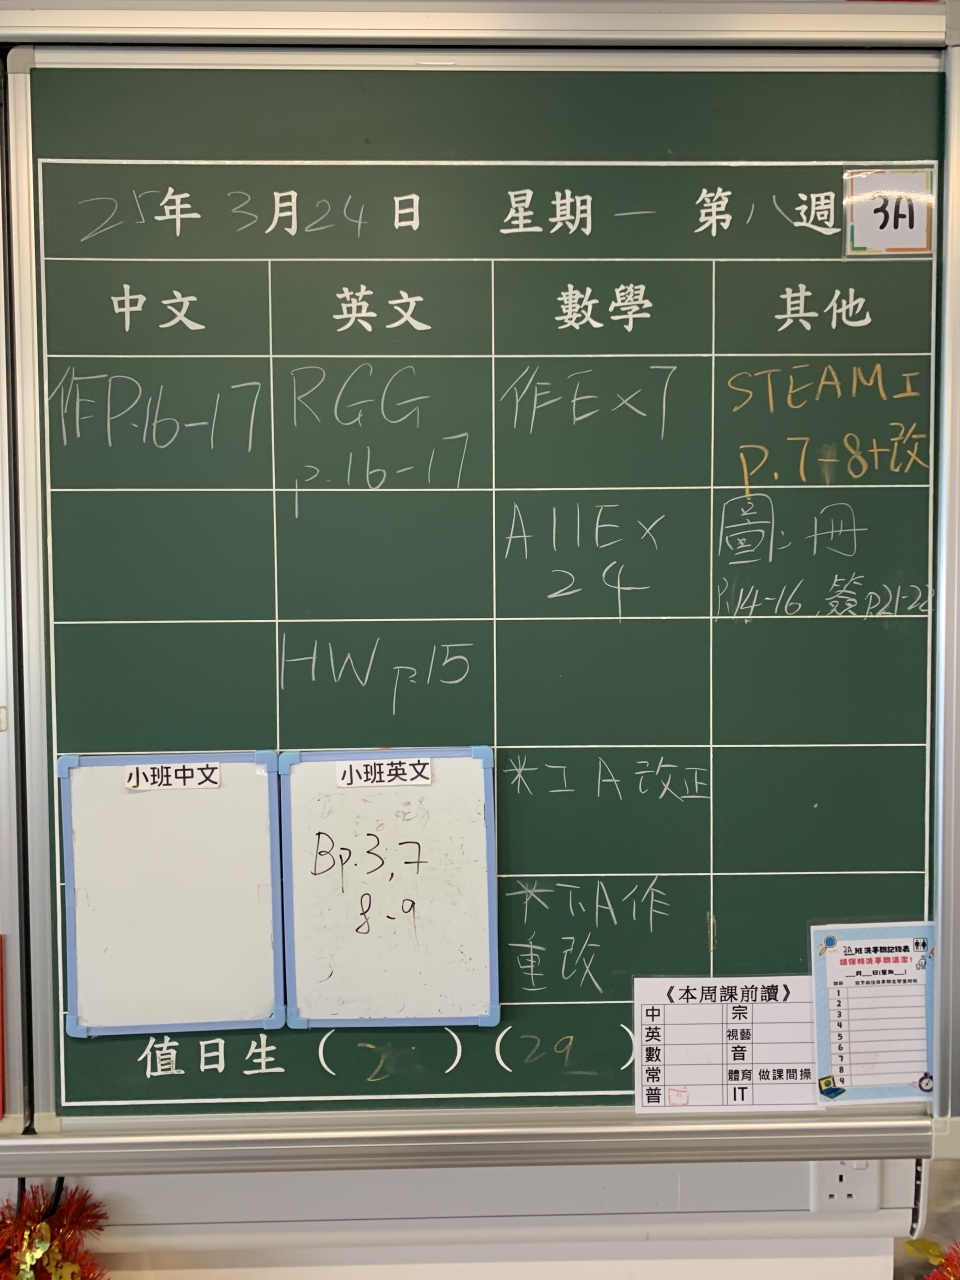 25年3月24日 星期一 第八週 3A
中文 英文 數學 其他
作P.16-17
RGG
p.16-17
作Ex7
STEAM工
p.7-8+改
A11Ex
24
圖:冊
P.14-16, 簽p.21-22
HW p.15
小班中文
小班英文
Bp.3,7
8-9
*工A改正
*下A作
重改
值日生( )(29)
《本周課前讀》
中 宗
英 視藝
數 音
常 體育 做課間操
普 IT
3A班洗手間記錄表
請保持洗手間清潔!
月 日(星期 )
1
2
3
4
5
6
7
8
9